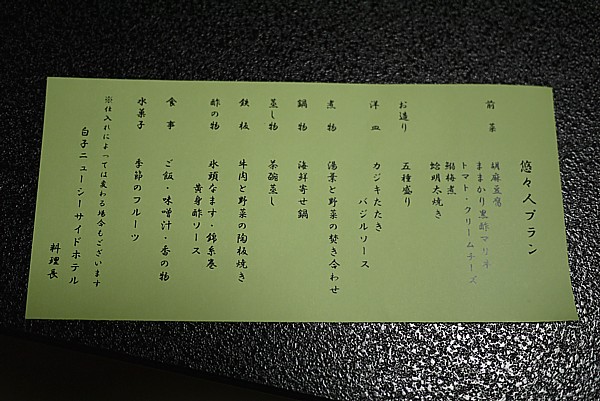 悠々人プラン
前菜 胡麻豆腐
ままかり黒酢マリネ
トマト・クリームチーズ
鰯梅煮
蛤明太焼き
お造り 五種盛り
洋皿 カジキたたき
バジルソース
煮物 湯葉と野菜の焚き合わせ
鍋物 海鮮寄せ鍋
蒸し物 茶碗蒸し
鉄板 牛肉と野菜の陶板焼き
酢の物 氷頭なます・錦糸巻
黄身酢ソース
食事 ご飯・味噌汁・香の物
水菓子 季節のフルーツ
※仕入れによっては変わる場合もございます
白子ニューシーサイドホテル
料理長